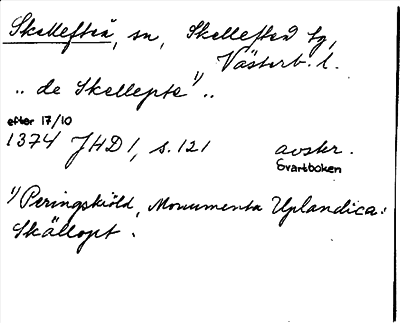 Skellefteå, sn, Skellefteå tg,
Västerb. l.
.. de Skellepte¹⁾ ..
efter 17/10
1374 JHD 1, s. 121 avskr.
Svartboken
¹⁾ Peringskiöld, Monumenta Uplandica:
Skällopt.